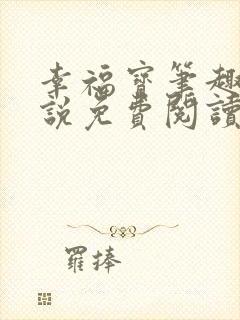 幸福寶筆趣
說免費閱讀
羅捧